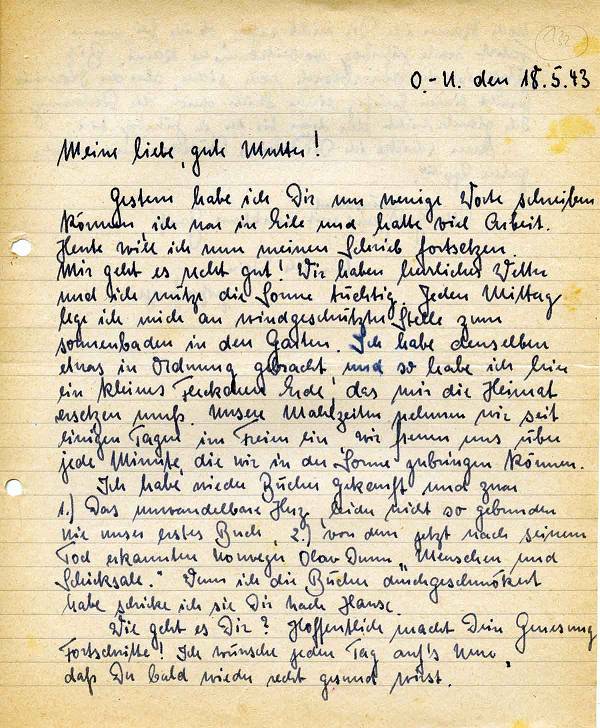 132
O.-U. den 18.5.43
Meine liebe, gute Mutter!
Gestern habe ich Dir nur wenige Worte schreiben
können, ich war in Eile und hatte viel Arbeit.
Heute will ich nun meinen Schrieb fortsetzen.
Mir geht es recht gut! Wir haben herrliches Wetter
und ich nütze die Sonne tüchtig. Jeden Mittag
lege ich mich an windgeschützter Stelle zum
sonnenbaden in den Garten. Ich habe denselben
etwas in Ordnung gebracht, und so habe ich hier
ein kleines Fleckchen Erde, das mir die Heimat
ersetzen muß. Unsere Mahlzeiten nehmen wir seit
einigen Tagen im Freien ein wir freuen uns über
jede Minute, die wir in der Sonne zubringen können.
Ich habe wieder Bücher gekauft und zwar
1.) Das unwandelbare Herz, leider nicht so gebunden
wie unser erstes Buch, 2.) von dem jetzt nach seinem
Tod erkannten Norweger Olav Duun „Menschen und
Schicksale." Wenn ich die Bücher durchgeschmökert
habe schicke ich sie Dir nach Hause.
Wie geht es Dir? Hoffentlich macht Dein Genesung
Fortschritte! Ich wünsche jeden Tag auf's neue,
daß Du bald wieder recht gesund wirst.